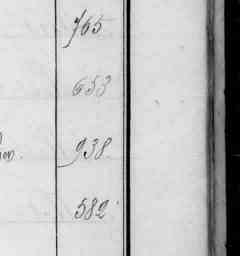 765
653
938
582